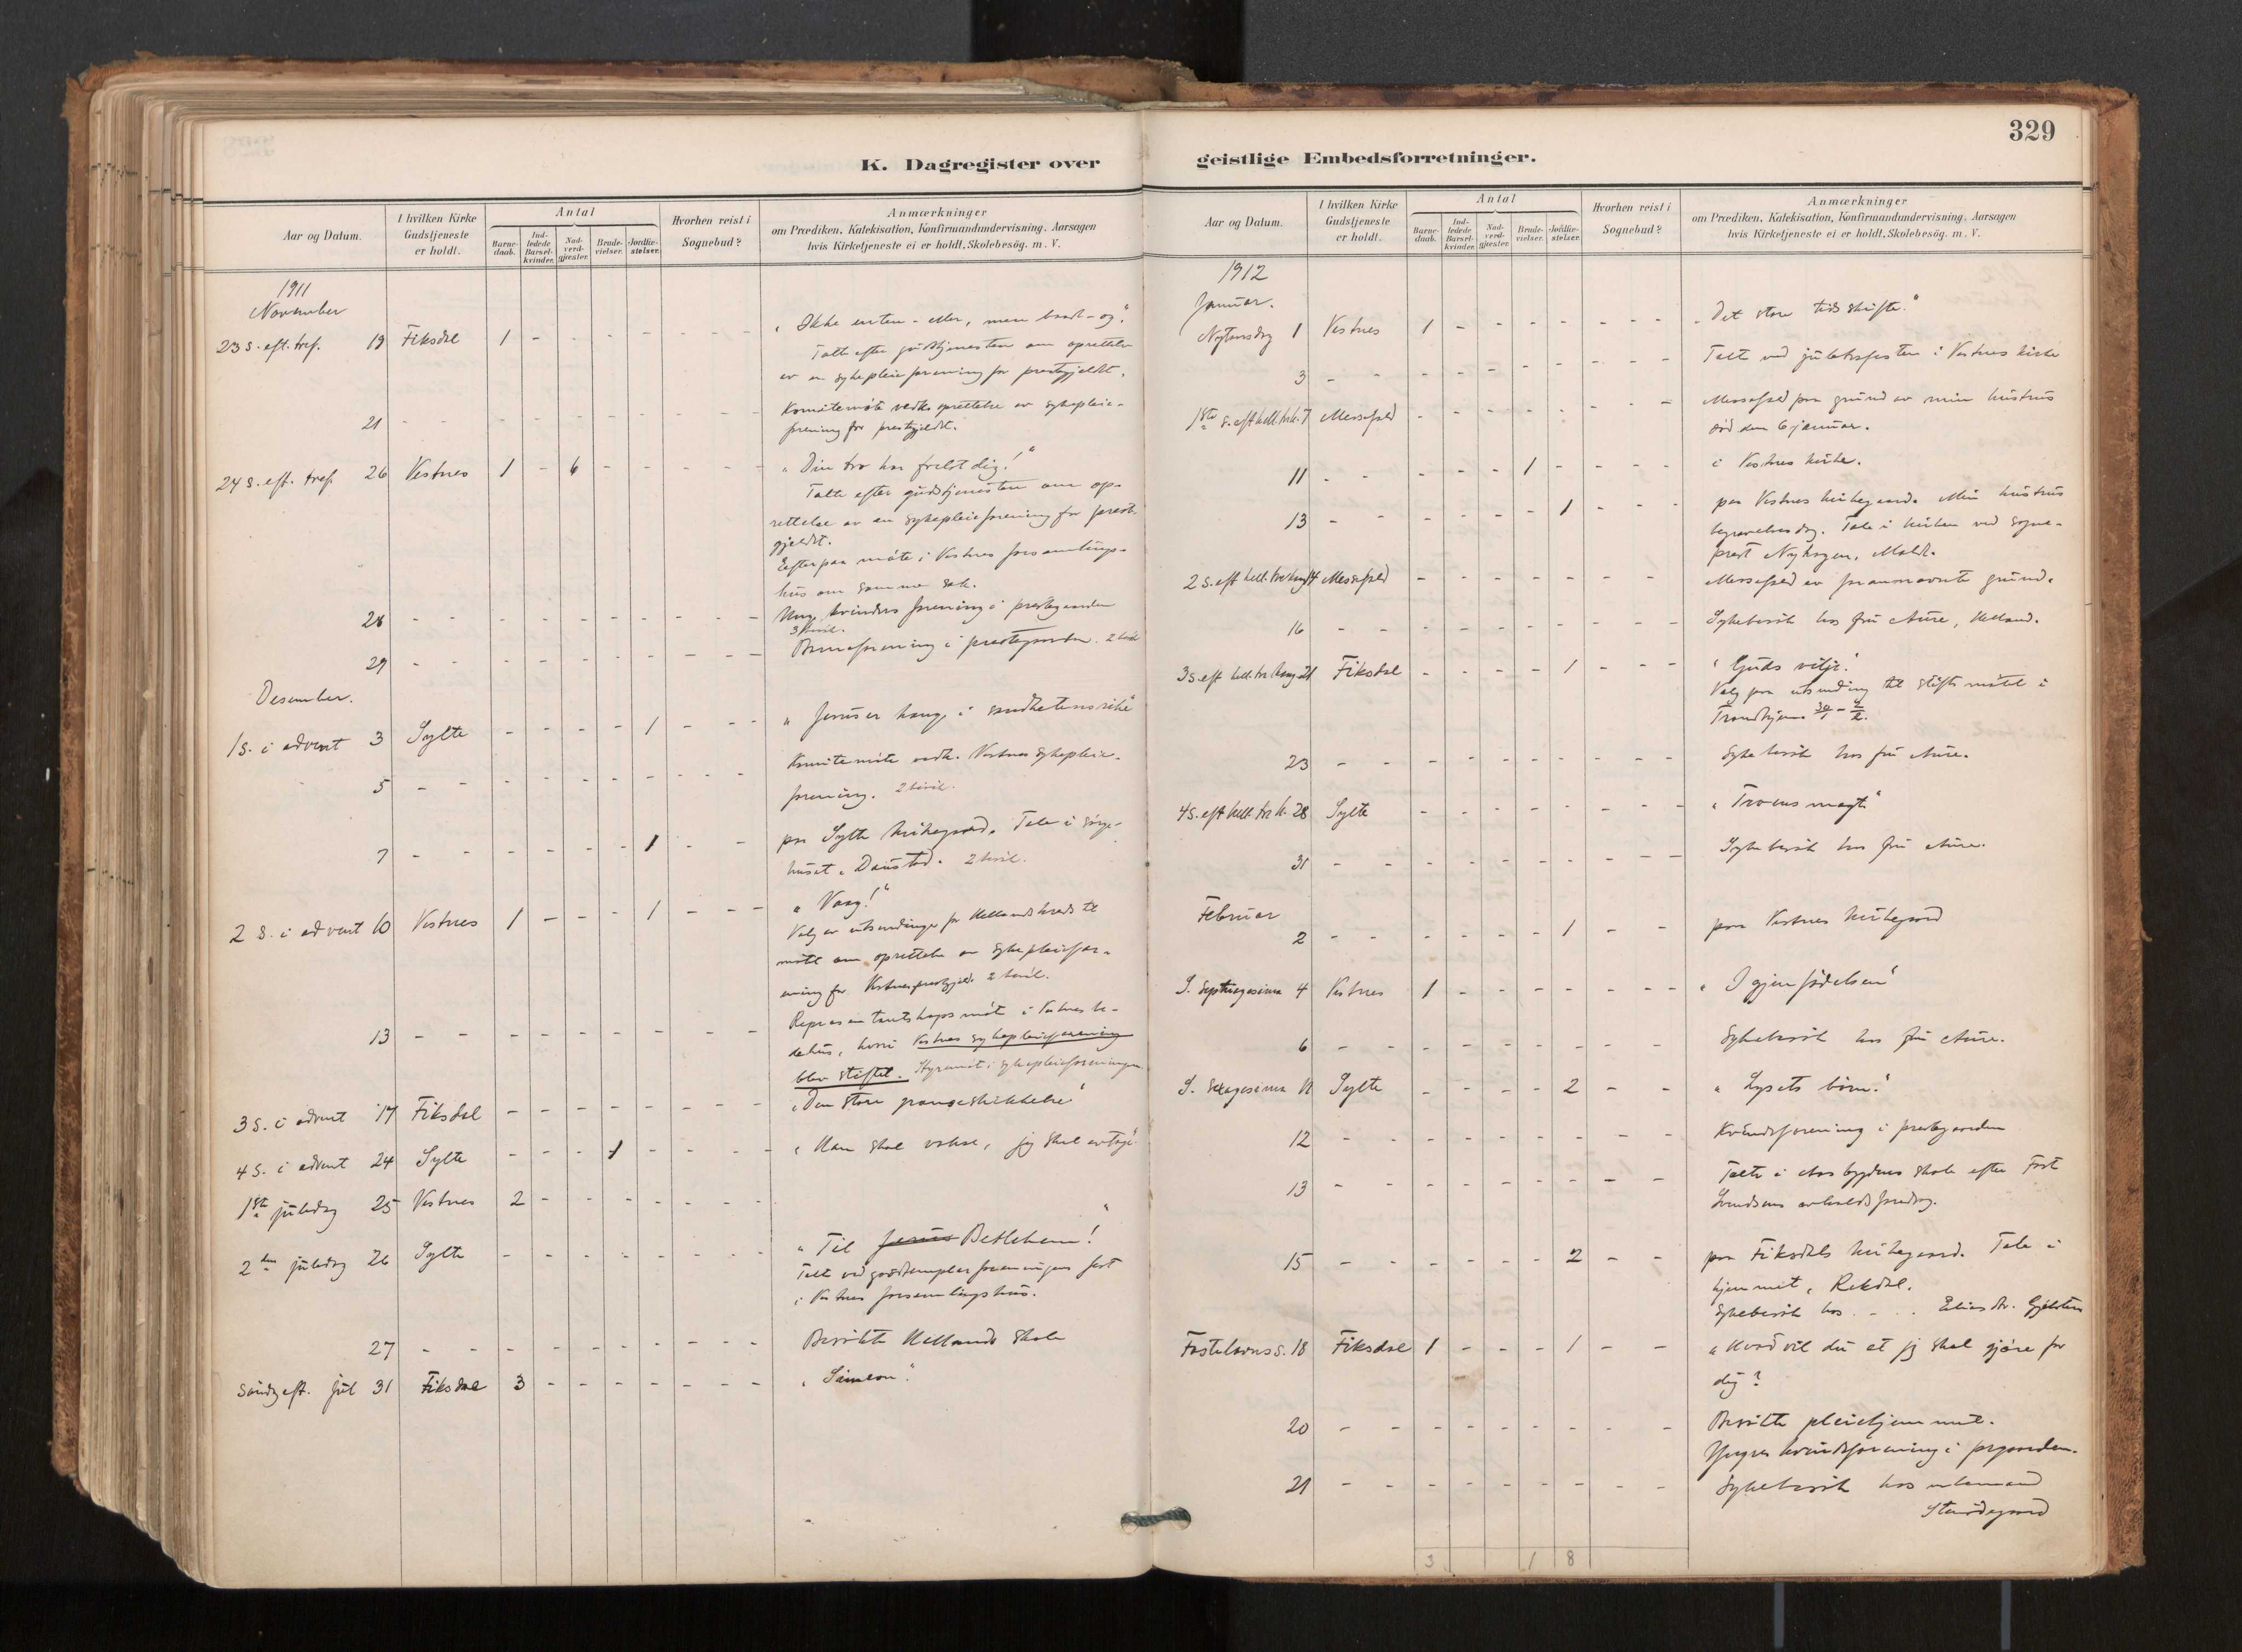 K. Dagregister over
Aar og Datum.
I hvilken Kirke Gudstjeneste er holdt.
Antal
Barne-daab.
Ind-ledede Barsel-kvinder.
Nad-verd-gjæster.
Brude-vielser.
Jordfæ-stelser.
Hvorhen reist i Sognebud?
Anmærkninger
om Prædiken, Katekisation, Konfirmandundervisning, Aarsagen
hvis Kirketjeneste ei er holdt, Skolebesög. m. V.
1911
November
23 s. eft. tref. 19 Fiksdal 1 - - - - - - - "Ikke enten - eller, men baade - og".
Talte efter gudstjenesten om oprettelse
av en sykepleieforening for prestegjeldet.
21 - - - - - - - - Komitemöte vedk. oprettelse av sykepleie-
forening for prestegjeldet.
24 s. eft. tref. 26 Vestnes 1 - 6 - - - - - "Din tro har frelst dig!"
Talte efter gudstjenesten om op-
rettelse av en sykepleieforening for preste-
gjeldet.
Efterpaa möte i Vestnes forsamlings-
hus om samme sak.
28 - - - - - - - - Unge kvinders forening i prestegaarden
29 - - - - - - - - Barneforening i prestegaarden.
Desember.
1 s. i advent 3 Sylte - - - - 1 - - - "Jesus er konge i sandhetens rike"
5 - - - - - - - - Komitemöte vedk. Vestnes sykepleie-
forening.
7 - - - - - - 1 - - paa Sylte kirkegaard. Tale i sörge-
huset, Daustad.
2 s. i advent 10 Vestnes 1 - - - 1 - - - "Vaag!"
Valg av utsendinger for Hellands kreds til
möte om oprettelse av sykepleiefor-
ening for Vestnes prestegjeld.
13 - - - - - - - - Representantskapsmöte i Vestnes be-
dehus, hvori Vestnes sykepleieforening
blev stiftet. Styremöte i sykepleieforeningen
3 s. i advent 17 Fiksdal - - - - - - - - "Den store
4 s. i advent 24 Sylte - - - 1 - - - - "Han skal vokse, jeg skal avta".
1ste juledag 25 Vestnes 2 - - - - - - -
2den juledag 26 Sylte - - - - - - - - "Til Jesus Betlehem!"
Talte ved godtemplarforeningens fest
i Vestnes forsamlingshus.
27 - - - - - - - - Besökte Hellands skole
Söndag eft. jul 31 Fiksdal 3 - - - - - - - "Simeon".
329
geistlige Embedsforretninger.
Aar og Datum.
I hvilken Kirke Gudstjeneste er holdt.
Antal
Barne-daab.
Ind-ledede Barsel-kvinder.
Nad-verd-gjæster.
Brude-vielser.
Jordfæ-stelser.
Hvorhen reist i Sognebud?
Anmærkninger
om Prædiken, Katekisation, Konfirmandundervisning, Aarsagen
hvis Kirketjeneste ei er holdt, Skolebesög. m. V.
1912
Januar.
Nytaarsdag 1 Vestnes 1 - - - - - - - "Det store tidsskifte".
3 - - - - - - - - Talte ved juletrefesten i Vestnes kirke
1ste s. eft hell. tre k. 7 Messefald - - - - - - - - Messefald paa grund av min hustrus
död den 6 januar.
11 - - - - - 1 - - - - i Vestnes kirke.
13 - - - - - - 1 - - - paa Vestnes kirkegaard. Min hustrus
begravelsesdag. Tale i kirken ved sogne-
prest Nyhagen, Molde.
2 s. eft hell. tre kong 14 Messefald - - - - - - - Messefald av forannævnte grund.
16 - - - - - - - - Sykebesök hos fru Aure, Helland.
3 s. eft hell. tre kong 21 Fiksdal - - - - 1 - - - "Guds vilje".
Valg paa utsending til stiftsmötet i
Trondhjem 30/1 - 2/2.
23 - - - - - - - - Sykebesök hos fru Aure.
4 s. eft hell. tre k. 28 Sylte - - - - - - - - "Troens magt"
31 - - - - - - - - Sykebesök hos fru Aure.
Februar
2 - - - - - - 1 - - paa Vestnes kirkegaard
S. Septuagesima 4 Vestnes 1 - - - - - - - "Igjenfödelsen"
6 - - - - - - - - Sykebesök hos fru Aure.
S. Sexagesima 11 Sylte - - - - 2 - - "Lysets börn".
12 - - - - - - - - Kvindeforening i prestegaarden
13 - - - - - - - - Talte i Aasbygdens skole efter
avholdsforedrag.
15 - - - - - - 2 - - paa Fiksdals kirkegaard. Tale i
hjemmet, Rekdal.
Sykebesök hos Elias Gjelsten
Fastelavns s. 18 Fiksdal 1 - - - 1 - - "Hvad vil du at jeg skal gjöre for
dig?
20 - - - - - - - - Besökte pleiehjemmet.
Yngres kvindeforening i prgaarden.
21 - - - - - - - - Sykebesök hos
3 1 8